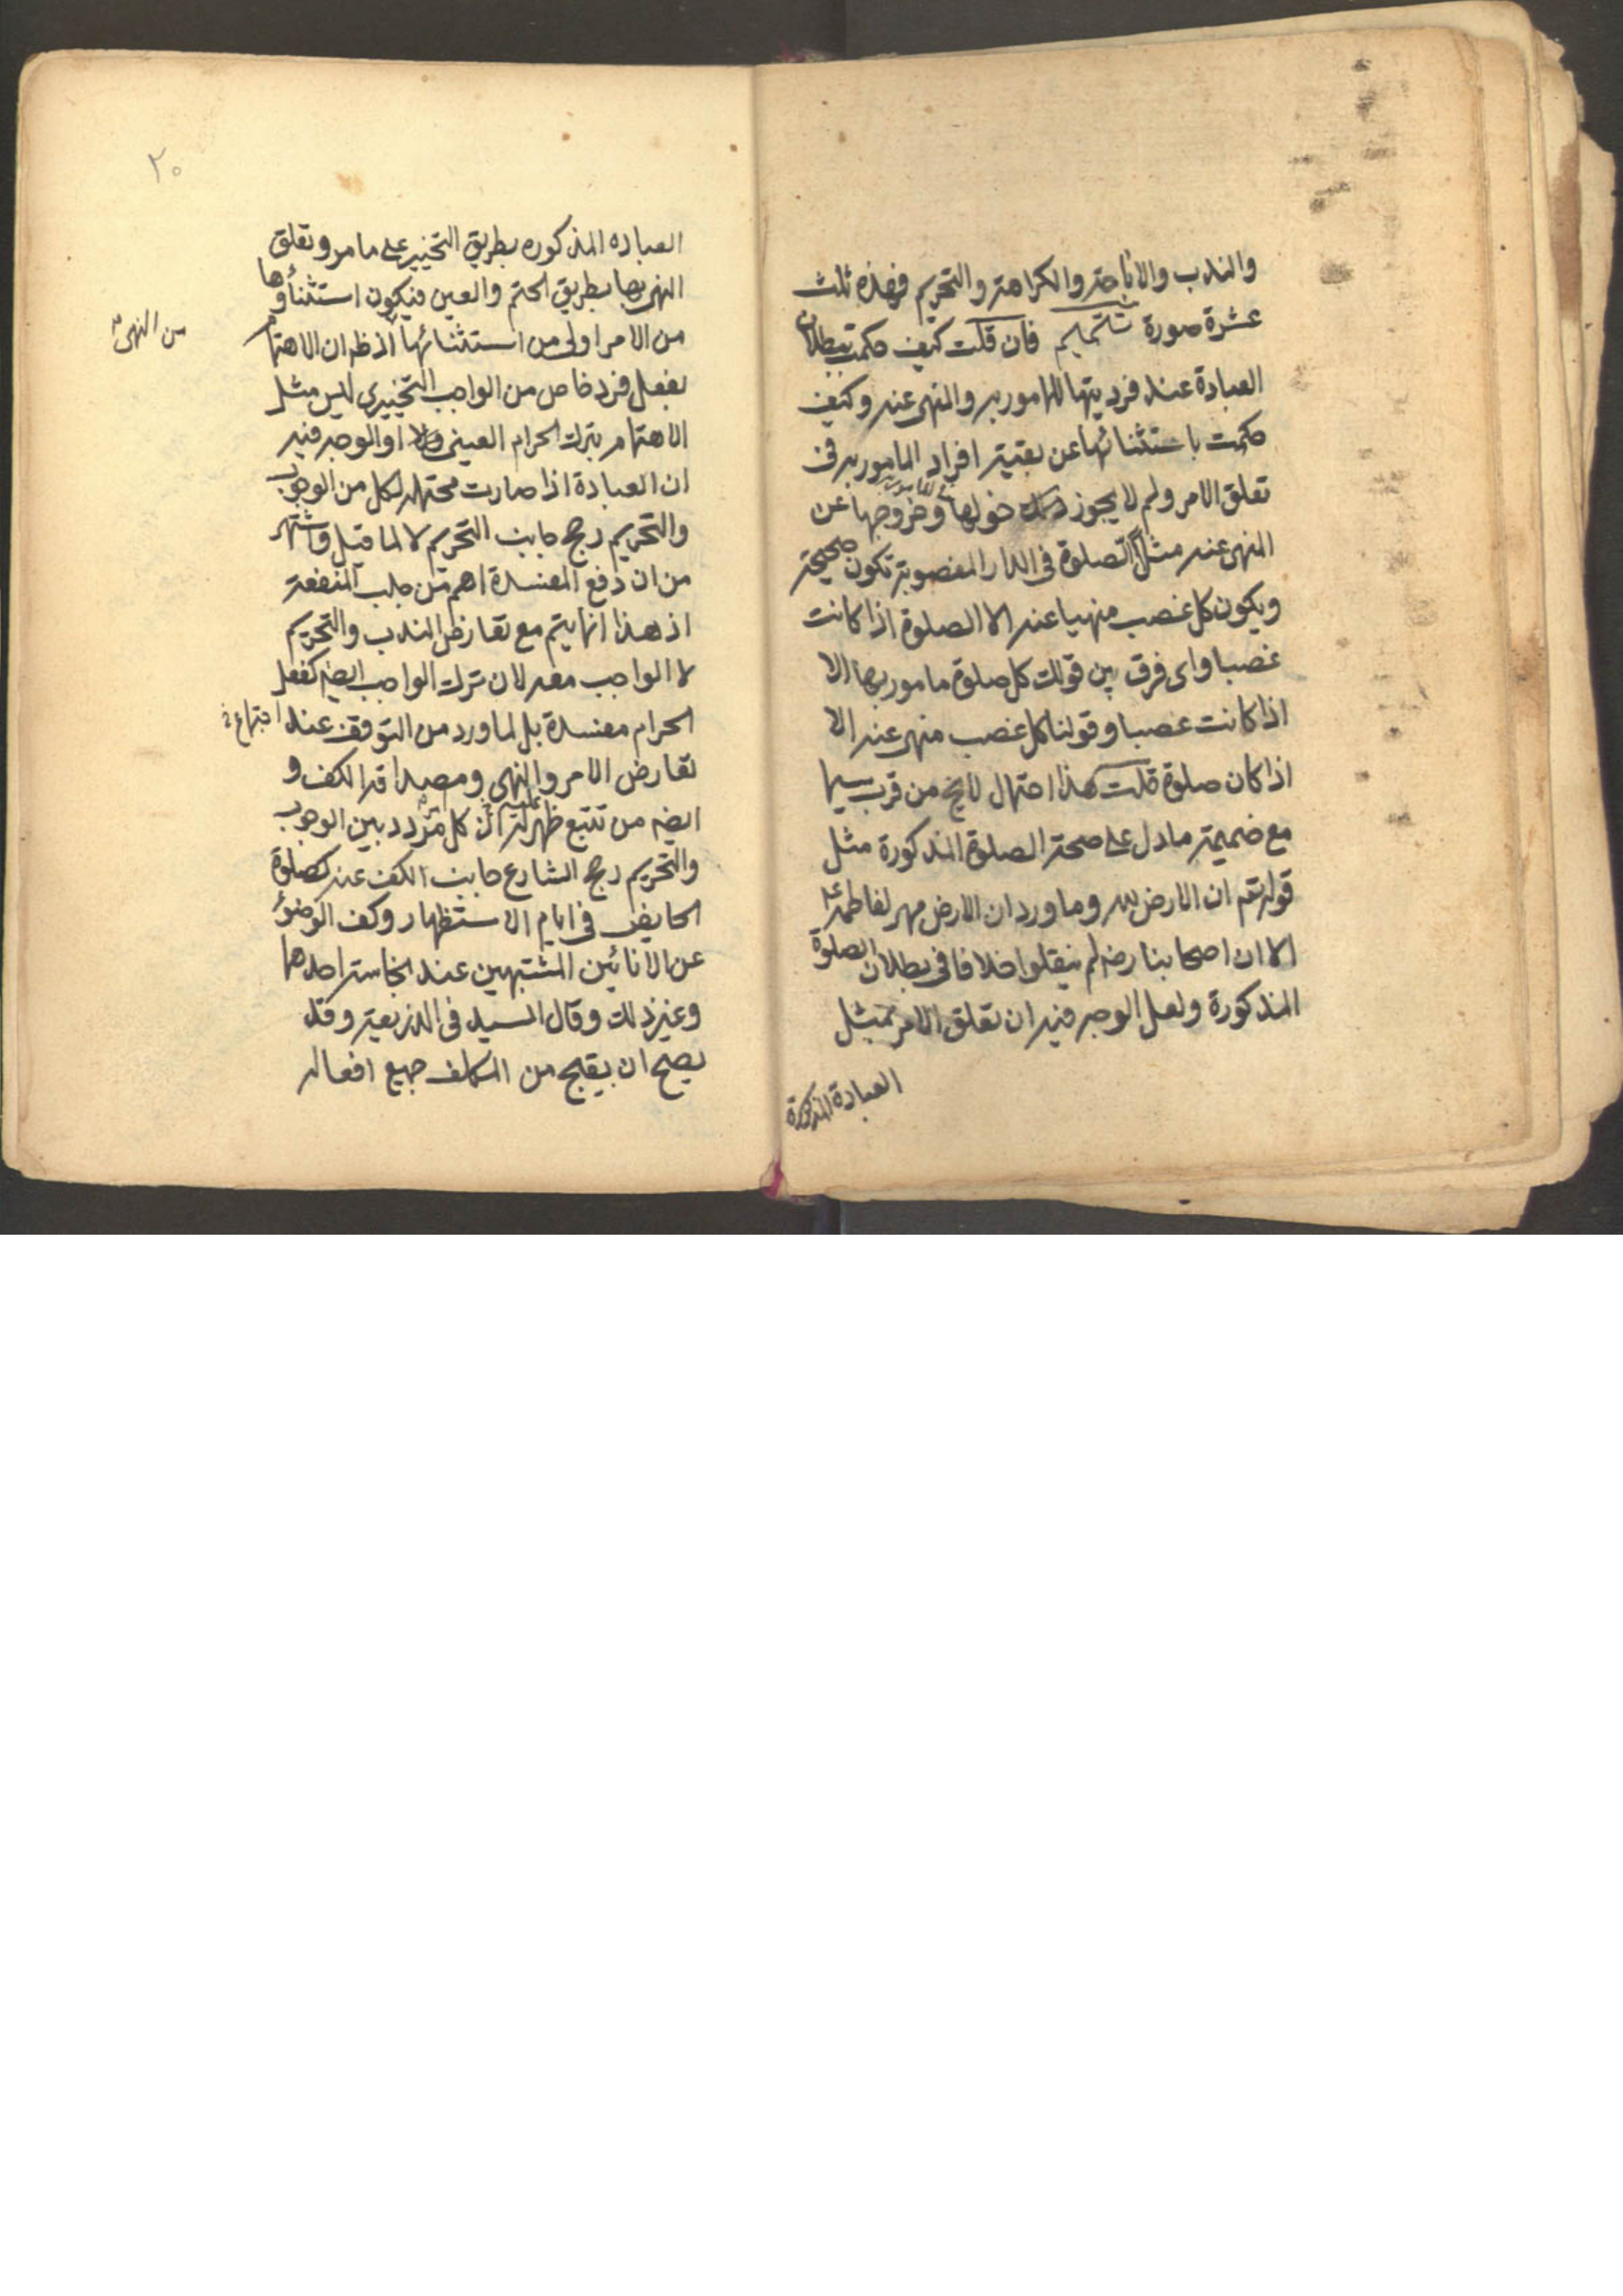 والندب والاباحة والكراهة والتحريم فهذه ثلث
عشرة صورة تتميم فان قلت كيف حكمت ببطلان
العبادة عند فرديتها للمامور به والمنهى عنه وكيف
حكمت باستثنائها عن بقية افراد المامور به فى
تعلق الامر ولم لا يجوز دخولها وخروجها عن
المنهى عنه مثل الصلوة فى الدار المغصوبة تكون صحيحة
ويكون كل غصب منهيا عنه الا الصلوة اذا كانت
غصبا واى فرق بين قولك كل صلوة مامور بها الا
اذا كانت غصبا وقولنا كل غصب منهى عنه الا
اذا كان صلوة قلت هذا احتمال لايخ من قرب سيما
مع ضميمة ما دل على صحة الصلوة المذكورة مثل
قوله تعم ان الارض لله وما ورد ان الارض مهر لفاطمة ع
الا ان اصحابنا رضه لم ينقلوا خلافا فى بطلان الصلوة
المذكورة ولعل الوجه فيه ان تعلق الامر بمثل
العبادة المذكورة
٢٠
العباده المذكوره بطريق التخيير على ما مر وتعلق
النهى بها بطريق الحتم والعين فيكون استثناؤها
من الامر اولى من استثنائها اذ ظه ان الاهتمام
من النهى
بفعل فرد خاص من الواجب التخييرى ليس مثل
الاهتمام بترك الحرام العينى او الوجه فيه
ان العبادة اذا صارت محتملة لكل من الوجوب
والتحريم رجح جانب التحريم لا لما قيل واشتهر
من ان دفع المفسدة اهم من جلب المنفعة
اذ هذا انما يتم مع تعارض الندب والتحريم
لا الواجب معه لان ترك الواجب ايضه كفعل
الحرام مفسدة بل لما ورد من التوقف عند اجتماع
تعارض الامر والنهى ومصداقه الكف و
ايضه من تتبع ظهر له ان كل متردد بين الوجوب
والتحريم رجح الشارع جانب الكف عنه كصلوة
الحايض فى ايام الاستظهار وكف الوضوء
عن الانائين المشتبهين عند نجاسة احدهما
وغير ذلك وقال السيد فى الذريعة وقد
يصح ان يقبح من المكلف جميع افعاله